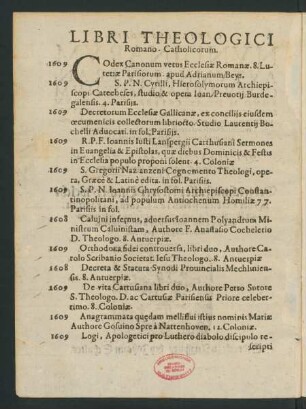 LIBRI THEOLOGICI
Romano-Catholicorum.
1609 Codex Canonum vetus Ecclesiæ Romanæ. 8. Lu-
tetiæ Parisiorum apud Adrianum Beys.
1609 S. P. N. Cyrilli, Hierosolymorum Archiepi-
scopi Catecheses, studio & opera Ioan. Preuotij Burde-
galensis. 4. Parisijs.
1609 Decretorum Ecclesiæ Gallicanæ, ex concilijs eiusdem
œcumenicis collectorum libri octo. Studio Laurentij Bo-
chelli Aduocati. in fol. Parisijs.
1609 R. P. F. Ioannis Iusti Lanspergij Carthusiani Sermones
in Euangelia & Epistolas, quæ diebus Dominicis & Festis
in Ecclesia populo proponi solent. 4. Coloniæ
1609 S. Gregorij Nazanzeni Cognomento Theologi, ope-
ra, Græcè & Latinè edita. in fol. Parisijs.
1609 S. P. N. Ioannis Chrysostomi Archiepiscopi Constan-
tinopolitani, ad populum Antiochenum Homiliæ 77.
Parisijs in fol.
1608 Caluini insepnus, aduersus Ioannem Polyandrum Mi-
nistrum Caluinistam, Authore F. Anastasio Cocheletio
D. Theologo. 8. Antuerpiæ.
1609 Orthodoxa fidei controuersa, libri duo, Authore Ca-
rolo Scribanio Societat. Iesu Theologo. 8. Antuerpiæ
1608 Decreta & Statuta Synodi Prouincialis Mechlinien-
sis. 8. Antuerpiæ.
1609 De vita Cartusiana libri duo, Authore Petro Sutore
S. Theologo. D. ac Cartusiæ Parisiensis Priore celeber-
rimo. 8. Coloniæ.
1609 Anagrammata quædam melliflui istius nominis Mariæ
Authore Gosuino Spre à Nattenhoven. 12. Coloniæ.
1609 Logi, Apologetici pro Luthero diaboli discipulo re-
scripti